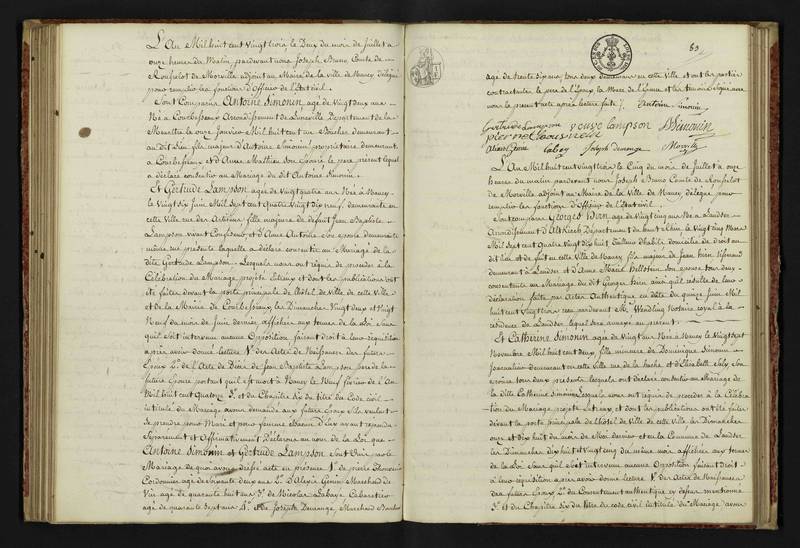 L'An Mil huit cent vingt trois, le Deux du mois de Juillet à
onze heures du Matin, pardevant nous Joseph Bruno Comte de
Morville adjoint au Maire de la ville de Nancy délégué
pour remplir les fonctions d'Officier de l'état civil.
Sont Comparus Antoine Simonin, agé de Vingt deux ans
Né à Courbesseaux Arrondissement de Lunéville Département de la
Meurthe le onze Janvier Mil huit cent un demeurant
au dit Lieu, fils majeur d'Antoine Simonin, propriétaire demeurant
à Courbesseaux, et d'Anne Mathieu son Epouse, le père présent lequel
a déclaré consentir au Mariage du dit Antoine Simonin.
Et Gertrude Lampson agée de Vingt quatre ans Née à Nancy
le Vingt Six Juin Mil Sept cent Quatre Vingt dix neuf, demeurante en
cette Ville rue des Artisans fille majeure de défunt Jean Baptiste
Lampson, vivant et d'Anne Antoine Son épouse demeurante
même rue présente laquelle a déclaré consentir au Mariage de la
dite Gertrude Lampson. Lesquels nous ont requis de procéder à la
Célébration du Mariage projeté entr'eux et dont les publications ont
été faites devant la porte principale de l'Hôtel de Ville de cette Ville
et de la Mairie de Courbesseaux, les Dimanches Vingt deux et Vingt
Neuf du mois de Juin dernier, affichées aux termes de la Loi. Sans
qu'il soit intervenu aucune Opposition faisant droit à leur réquisition
après avoir donné lecture 1°. des Actes de Naissance des futurs
Epoux 2°. de l'Acte de Décès de Jean Baptiste Lampson père de la
future Epouse portant qu'il est mort à Nancy le Neuf février de l'An
Mil huit cent Quatorze 3°. et du Chapitre Six du titre du Code civil
intitulé du Mariage avons demandé aux futurs Epoux s'ils veulent
se prendre pour Mari et pour femme chacun d'eux ayant répondu
Séparément et Affirmativement Déclarons au nom de la Loi que
Antoine Simonin et Gertrude Lampson Sont Unis par le
Mariage de quoi avons dressé acte en présence 1°. de pierre
Cordonnier agé de soixante deux ans 2°. D'Alexis Génin Marchand de
Vin agé de quarante huit ans 3°. de Nicolas Cabaretier
agé de quarante Sept ans 4°. et de Joseph Marchand
80
agé de trente six ans, tous deux demeurans en cette Ville et ont les parties
contractantes le père de l'Epoux, la Mère de l'Epouse et les témoins Signé avec
nous le présent acte après lecture faite. Antoine Simonin
Gertrude Lampson veuve lampson Simonin
L'An Mil huit cent vingt trois le Cinq du mois de Juillet à onze
heures du matin pardevant nous Joseph Bruno Comte de
de Morville adjoint au Maire de la Ville de Nancy, délégué pour
remplir les fonctions d'Officier de l'état civil.
Sont comparus Georges agé de Vingt cinq ans Né à Landser
Arrondissement d'Altkirch Département du haut Rhin, le Vingt cinq Mars
Mil Sept cent Quatre Vingt dix huit, Tailleur d'habits domicilié de droit au
dit Lieu et de fait en cette Ville de Nancy, fils majeur de Jean
demeurant à Landser et d'Anne Marie son épouse tous deux
consentants au Mariage du dit Georges ainsi qu'il résulte de leur
déclaration faite par Actes Authentique en date du quinze Juin Mil
huit cent vingt trois reçu pardevant M. Wendling Notaire royal à la
résidence de Landser lequel sera annexé au présent.
Et Catherine Simonin agée de Vingt ans Née à Nancy le Vingt sept
Novembre Mil huit cent deux, fille mineure de Dominique Simonin
Journalier demeurant en cette Ville rue de la hache et d'Elisabeth Son
épouse tous deux présents lesquels ont déclaré consentir au Mariage de
la dite Catherine Simonin, Lesquels nous ont requis de procéder à la Célébra-
-tion du Mariage projeté entr'eux, et dont les publications ont été faites
devant la porte principale de l'hôtel de Ville de cette Ville les Dimanches
onze et dix huit du mois de Mai dernier et en la Commune de Landser
les Dimanches dix huit et vingt cinq du même mois affichées aux termes
de la Loi sans qu'il soit intervenu aucune Opposition faisant Droit
à leur réquisition après avoir donné lecture 1°. des Actes de Naissance
des futurs Epoux 2°. du Consentement authentique ci dessus mentionné
3°. et du Chapitre Six du titre du code civil intitulé du Mariage avons